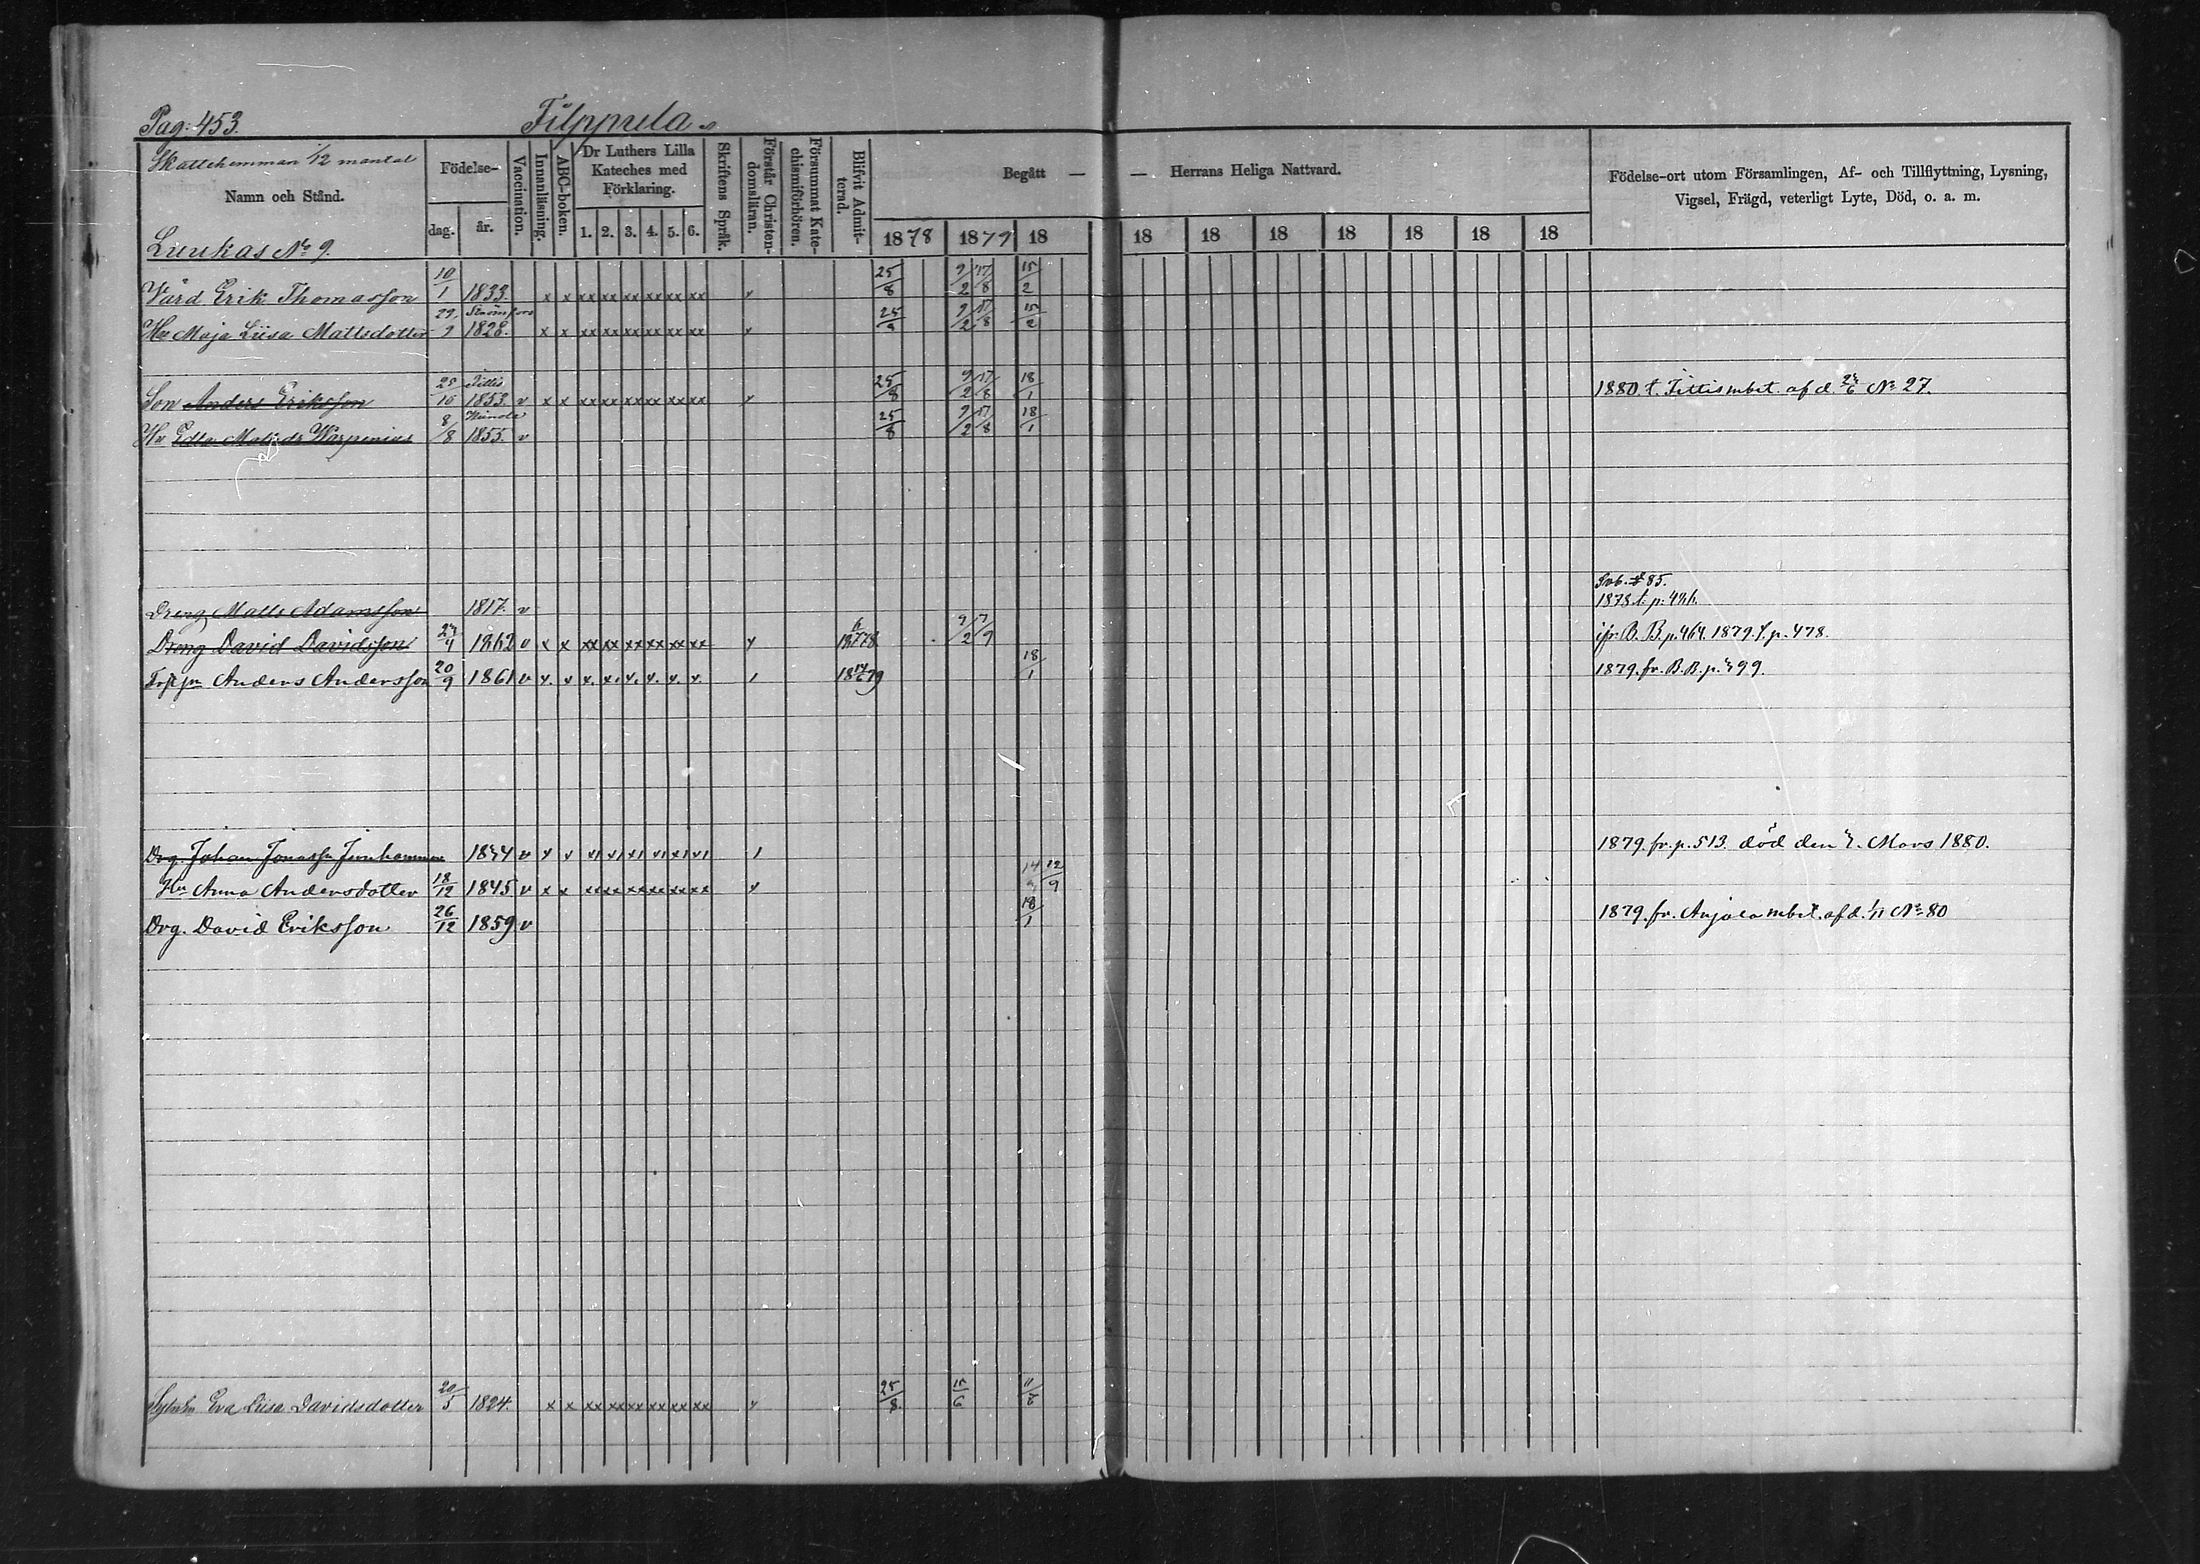 Pag: 453. Filppula
Skattehemman 1/12 mantal
Namn och Stånd.
Födelse-
dag. år.
Vaccination.
Innanläsning.
ABC-boken.
Dr Luthers Lilla
Kateches med
Förklaring.
1. 2. 3. 4. 5. 6.
Skriftens Språk.
Förstår Christen-
domsläran.
Försummat Kate-
chismiförhören.
Blifvit Admit-
terad.
Begått — — Herrans Heliga Nattvard.
1878 1879 18 18 18 18 18 18 18 18
Födelse-ort utom Församlingen, Af- och Tillflyttning, Lysning,
Vigsel, Frägd, veterligt Lyte, Död, o. a. m.
Luukas No 9.
Värd Erik Thomasson 10/1 1833. x x xx xx xx xx xx xx v 25/8 9/2 17/8 15/2
Strömfors
Hu Maja Liisa Mattsdotter 29/9 1828. x x xx xx xx xx xx xx v 25/8 9/2 17/8 15/2
Tittis
Son Anders Eriksson 25/10 1853. v x x xx xx xx xx xx xx v 25/8 9/2 17/8 18/1 1880. t. Tittis mbet. af d. No 27.
Hu Edla 8/8 1855. v 25/8 9/2 17/8 18/1
85.
Dreng Matts Adamsson 1817. v 1878 t. p.
Dreng David Davidsson 1862 v x x xx xx xx xx xx xx v 1878 B. B. p. 464. 1879. t. p. 478.
Anders Andersson 20/9 1861 v v. v v. v. v. v. v. v. 1879 18/1 1879. fr. B. B. p.
Drg. Johan v v v 1879. fr. p. 513. död den Mars 1880.
Hu Anna Andersdotter 18/12 1845 v x x xx xx xx xx xx xx v 12/9
Drg. David Eriksson 26/12 1859 v 18/1 1879. fr. Anjala mbet. af d. 1/11 No 80
Eva Liisa Davidsdotter 20/5 1824. x x xx xx xx xx xx xx v 25/8. 15/6